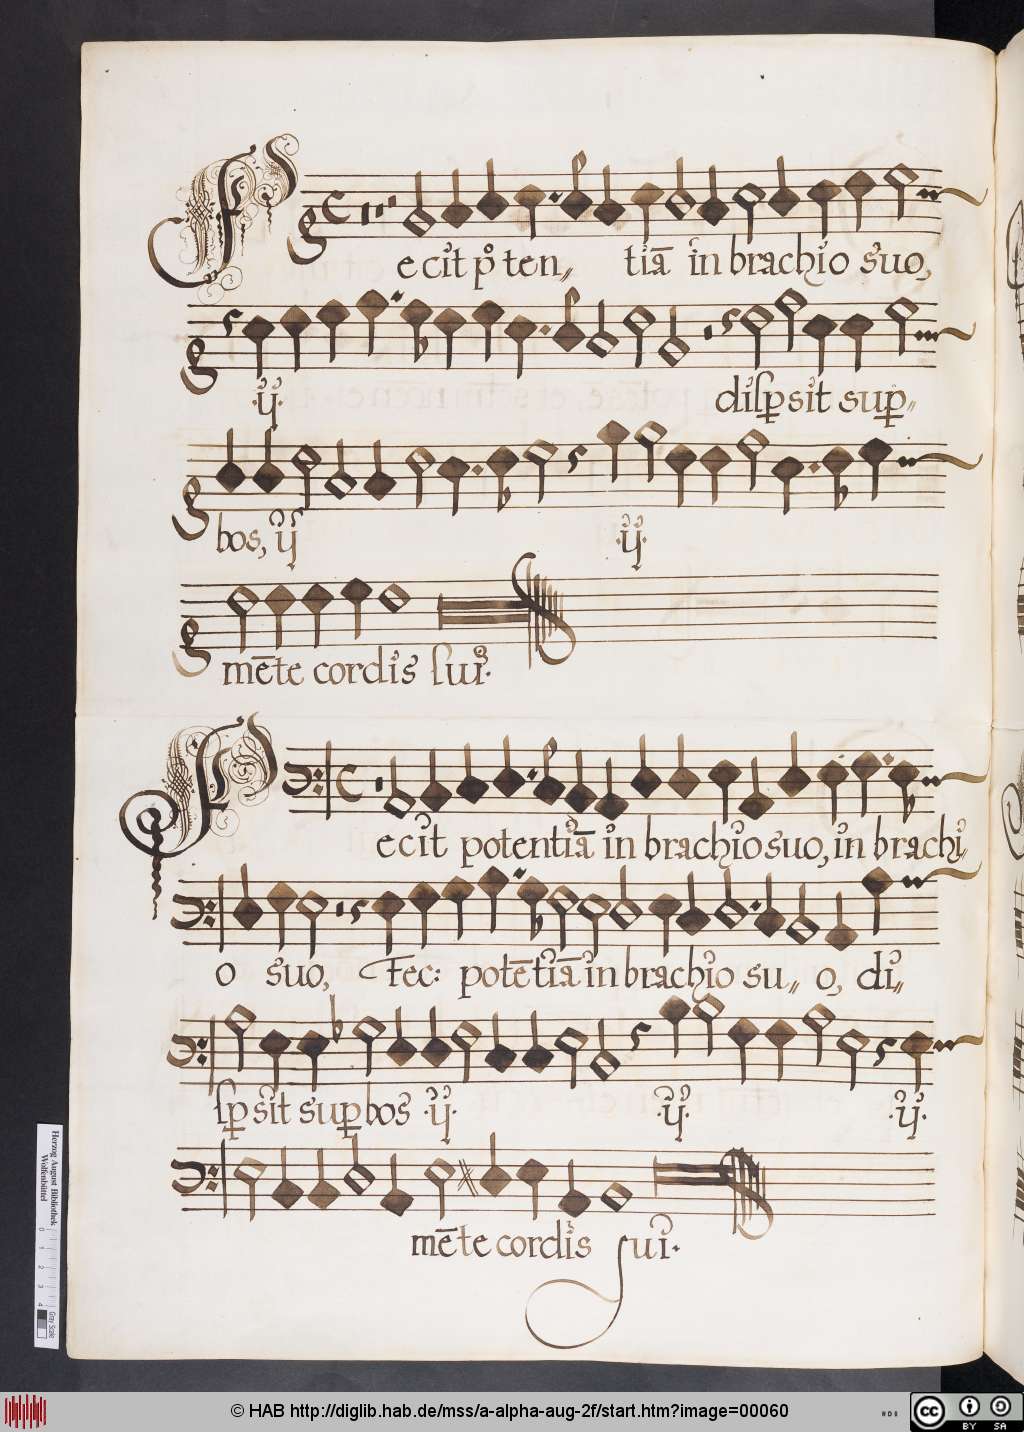 Fecit po̊ten〃 tiā in brachio suo,
·ij· disp̱sit sup̱〃
bos, ij ·ij·
mēte cordis sui.
Fecit potentiā in brachio suo, in brachi〃
o suo, Fec: potētiā in brachio su〃 o, di〃
sp̱sit sup̱bos ·ij· ·ij· ·ij·
mēte cordis sui.
Herzog August Bibliothek
Wolfenbüttel
0 1 2 3 4
© HAB http://diglib.hab.de/mss/a-alpha-aug-2f/start.htm?image=00060
cc BY SA